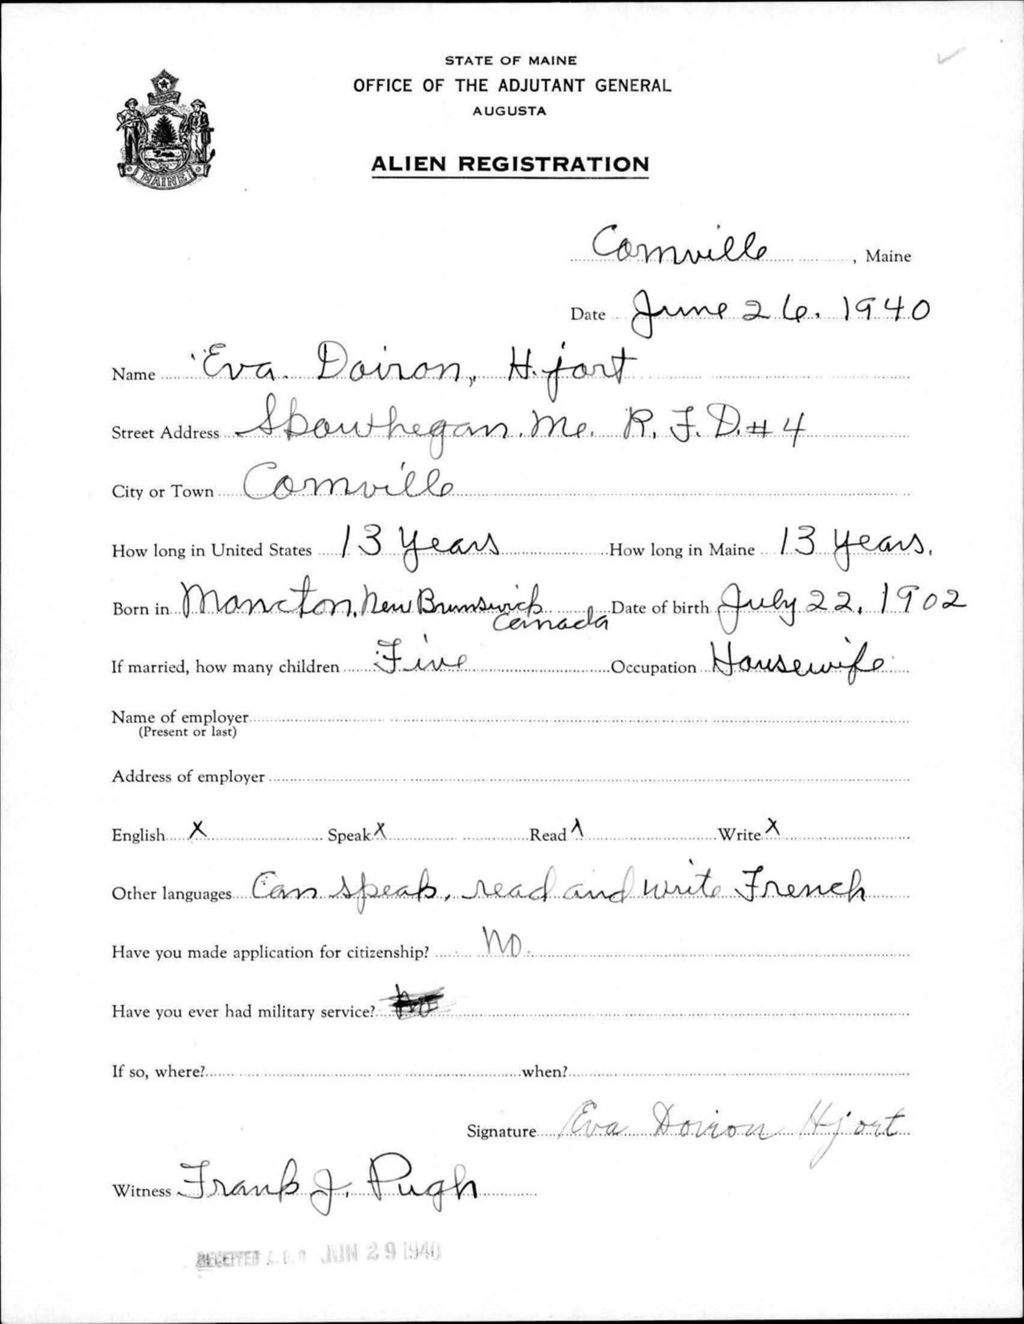 STATE OF MAINE
OFFICE OF THE ADJUTANT GENERAL
AUGUSTA
ALIEN REGISTRATION
MAINE
Cornville, Maine
Date June 26, 1940
Name Eva Doiron, Hjort
Street Address Skowhegan. Me. R. F. D. # 4
City or Town Cornville
How long in United States 13 Years How long in Maine 13 years.
Born in Moncton, New Brunswick Canada Date of birth July 22, 1902
If married, how many children Five Occupation Housewife
Name of employer
(Present or last)
Address of employer
English X Speak X Read X Write X
Other languages Can speak, read and write French
Have you made application for citizenship? No.
Have you ever had military service?
If so, where? when?
Signature Eva Doiron Hjort
Witness Frank J. Pugh
RECEIVED A.G.O JUN 29 1940